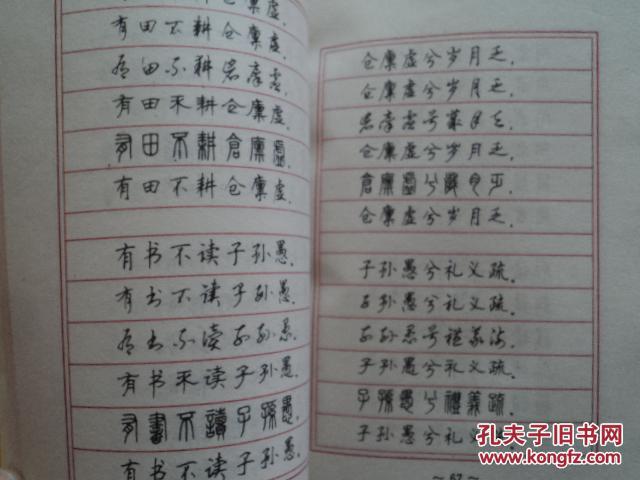 有田不耕仓廪虚.
有田不耕仓廪虚.
有田不耕仓廪虚.
有田不耕倉廩虛.
有田不耕仓廪虚.
有书不读子孙愚.
有书不读子孙愚.
有书不读子孙愚.
有书不读子孙愚.
有書不讀子孫愚.
有书不读子孙愚.
仓廪虚兮岁月乏.
仓廪虚兮岁月乏.
仓廪虚兮岁月乏.
仓廪虚兮岁月乏.
倉廩虛兮歲月乏.
仓廪虚兮岁月乏.
子孙愚兮礼义疏.
子孙愚兮礼义疏.
子孙愚兮禮義疏.
子孙愚兮礼义疏.
子孫愚兮禮義疏.
子孙愚兮礼义疏.
~67~
孔夫子旧书网
www.kongfz.com